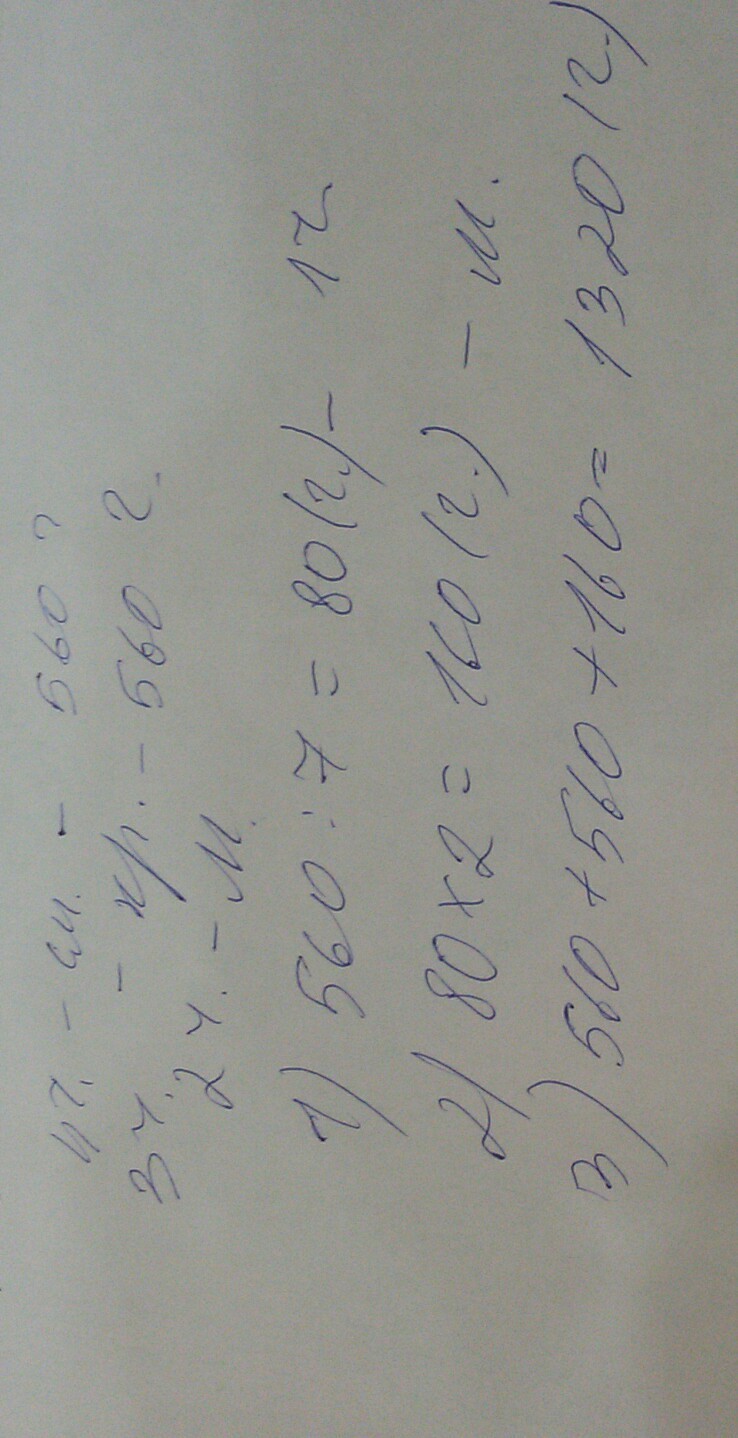 4 ч. - сл. - 560 г
3 ч. - кр. - 560 г.
2 ч. - М.
1) 560 : 7 = 80 (г.) - 1 ч
2) 80 x 2 = 160 (г.) - М.
3) 560 + 560 + 160 = 1320 (г.)